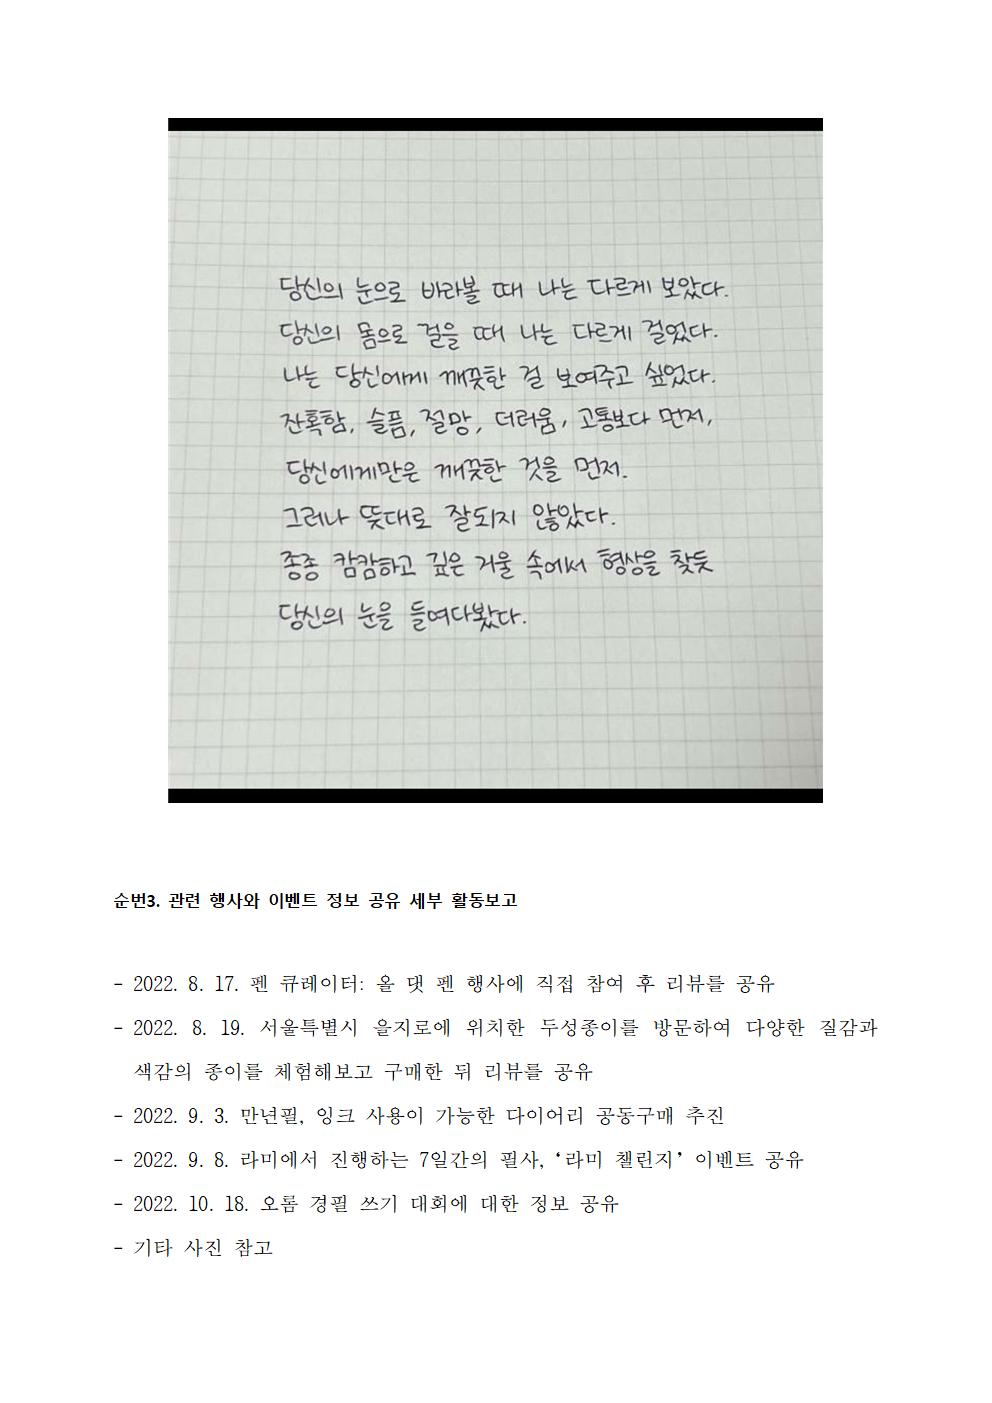 당신의 눈으로 바라볼 때 나는 다르게 보았다.
당신의 몸으로 걸을 때 나는 다르게 걸었다.
나는 당신에게 깨끗한 걸 보여주고 싶었다.
잔혹함, 슬픔, 절망, 더러움, 고통보다 먼저,
당신에게만은 깨끗한 것을 먼저.
그러나 뜻대로 잘되지 않았다.
종종 캄캄하고 깊은 거울 속에서 형상을 찾듯
당신의 눈을 들여다봤다.
순번3. 관련 행사와 이벤트 정보 공유 세부 활동보고
- 2022. 8. 17. 펜 큐레이터: 올 댓 펜 행사에 직접 참여 후 리뷰를 공유
- 2022. 8. 19. 서울특별시 을지로에 위치한 두성종이를 방문하여 다양한 질감과
색감의 종이를 체험해보고 구매한 뒤 리뷰를 공유
- 2022. 9. 3. 만년필, 잉크 사용이 가능한 다이어리 공동구매 추진
- 2022. 9. 8. 라미에서 진행하는 7일간의 필사, ‘라미 챌린지’ 이벤트 공유
- 2022. 10. 18. 오롬 경필 쓰기 대회에 대한 정보 공유
- 기타 사진 참고